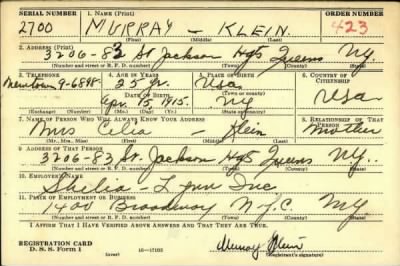 SERIAL NUMBER 1. NAME (Print) ORDER NUMBER
2700 MURRAY — KLEIN 423
(First) (Middle) (Last)
2. ADDRESS (Print)
3206-83 St. Jackson Hgts Queens N.Y.
(Number and street or R. F. D. number) (Town) (County) (State)
3. TELEPHONE 4. AGE IN YEARS 5. PLACE OF BIRTH 6. COUNTRY OF CITIZENSHIP
Newtown 9-6898 25 yr Usa Usa
DATE OF BIRTH (Town or county)
Apr. 15, 1915. NY
(Exchange) (Number) (Mo.) (Day) (Yr.) (State or country)
7. NAME OF PERSON WHO WILL ALWAYS KNOW YOUR ADDRESS 8. RELATIONSHIP OF THAT PERSON
Mrs Celia — Klein Mother
(Mr., Mrs., Miss) (First) (Middle) (Last)
9. ADDRESS OF THAT PERSON
3206-83 St. Jackson Hgts Queens N.Y.
(Number and street or R. F. D. number) (Town) (County) (State)
10. EMPLOYER'S NAME
Shelia-Lynn Inc
11. PLACE OF EMPLOYMENT OR BUSINESS
1400 Broadway N.Y.C. NY
(Number and street or R. F. D. number) (Town) (County) (State)
I AFFIRM THAT I HAVE VERIFIED ABOVE ANSWERS AND THAT THEY ARE TRUE.
REGISTRATION CARD
D. S. S. Form 1 (over) 16—17105 Murray Klein
(Registrant's signature)